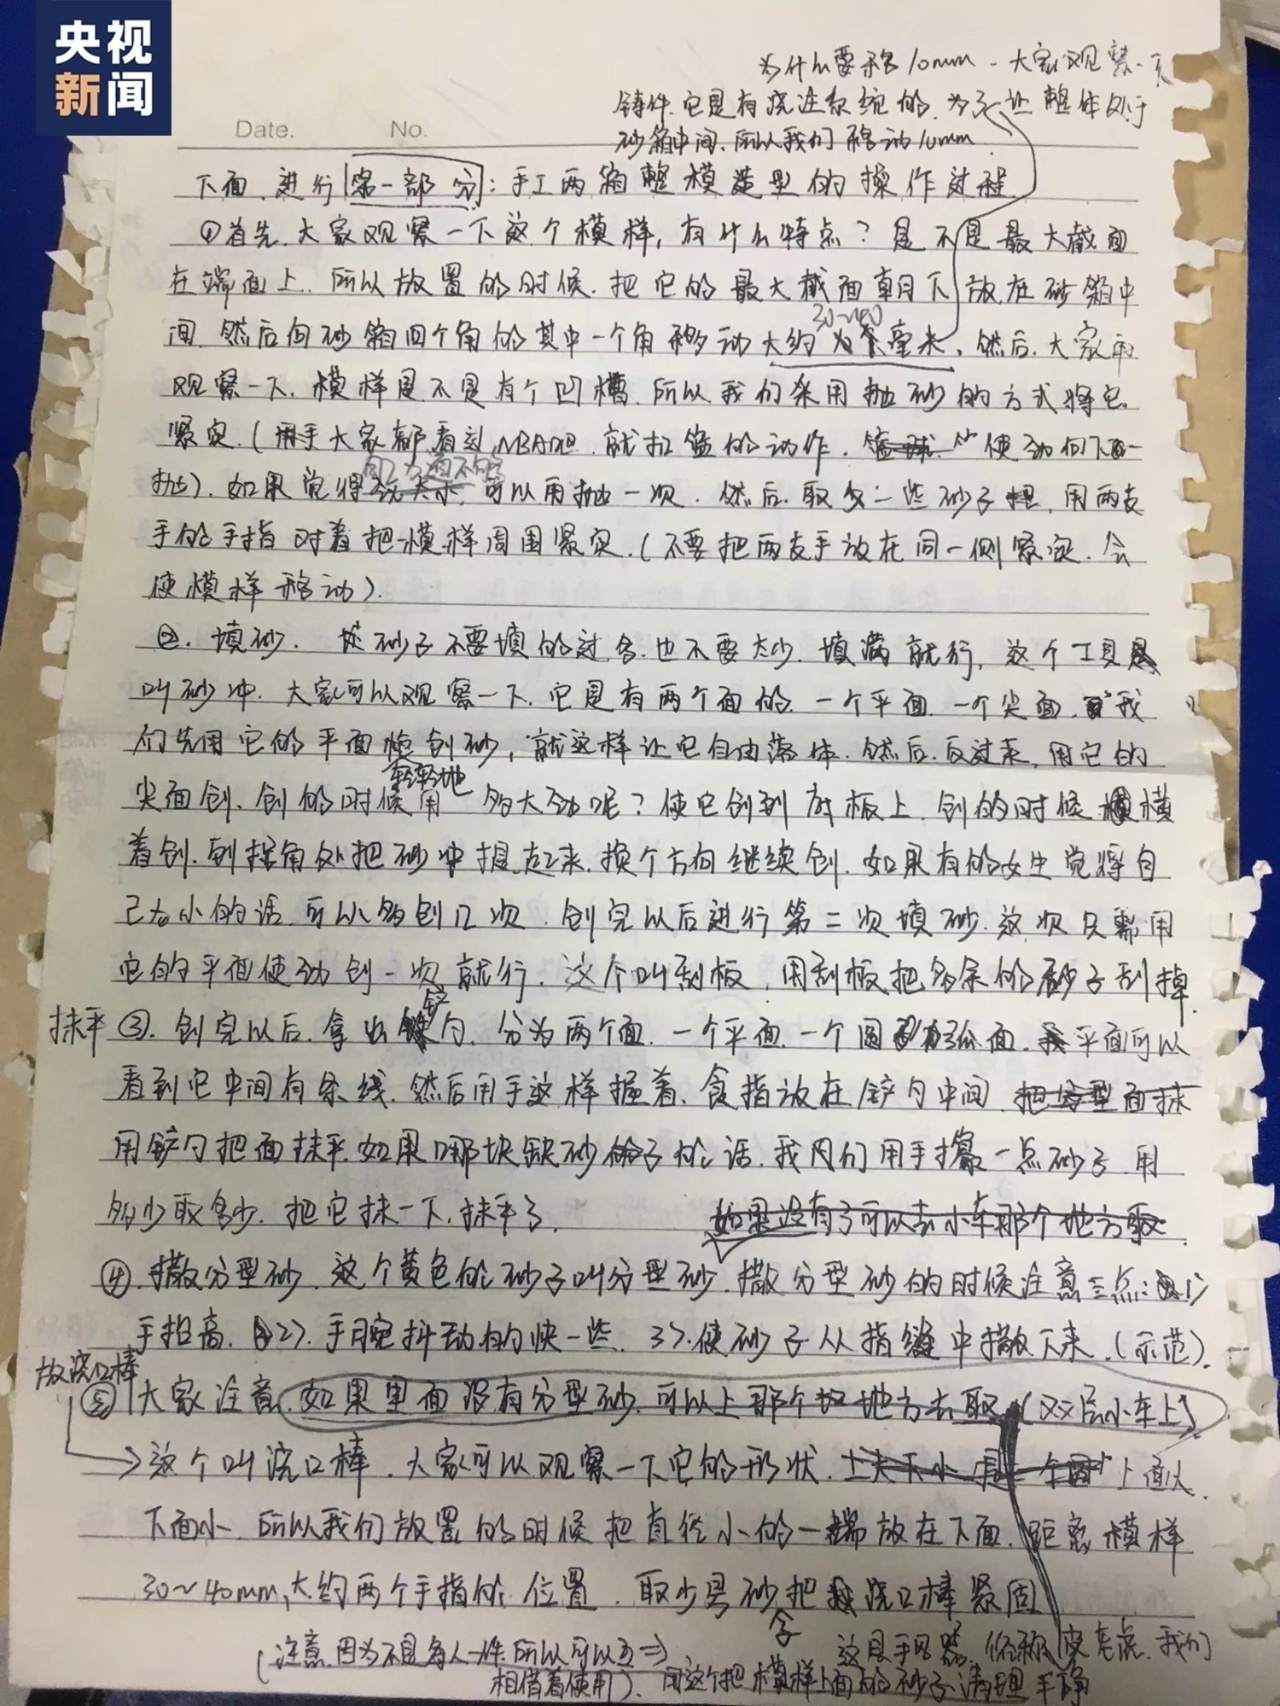 央视
新闻
为什么要移10mm - 大家观察一下
铸件.它是有浇注系统的.为了让整体处于
砂箱中间.所以我们移动10mm
Date. No.
下面.进行第一部分:手工两箱整模造型的操作过程
①首先.大家观察一下这个模样,有什么特点?是不是最大截面
在端面上.所以放置的时候.把它的最大截面朝下放在砂箱中
30~40
间.然后向砂箱四个角的其中一个角移动大约为毫米.然后.大家再
观察一下.模样是不是有个凹槽.所以我们采用抛砂的方式将它
紧实.(用手大家都看过NBA吧.就扣篮的动作.使劲向下一
抛).如果觉得可以用抛一次.然后.取少一些砂子.用两支
手的手指对着把模样周围紧实.(不要把两支手放在同一侧紧实.会
使模样移动).
②.填砂.砂子不要填的过多.也不要太少.填满就行.这个工具
叫砂冲.大家可以观察一下.它是有两个面的.一个平面.一个尖面.我
们先用它的平面创砂,就这样让它自由落体.然后.反过来.用它的
轻轻地
尖面创.创的时候用多大劲呢?使它创到底板上.创的时候横
着创.到拐角处把砂冲提起来.换个方向继续创.如果有的女生觉得自
己力小的话.可以多创几次.创完以后进行第二次填砂.这次只需用
它的平面使劲创一次就行.这个叫刮板.用刮板把多余的砂子刮掉
抹平③.创完以后.拿出铲勺.分为两个面.一个平面.一个圆弧面.平面可以
看到它中间有条线.然后用手这样握着.食指放在铲勺中间.把分型面抹
用铲勺把面抹平.如果哪块缺砂子的话.我们用手撮一点砂子.用
多少取多少.把它抹一下.抹平了. 如果没有了可以去小车那个地方取
④.撒分型砂.这个黄色的砂子叫分型砂.撒分型砂的时候注意三点:1)
手抬高.2).手腕抖动的快一些.3).使砂子从指缝中撒下来.(示范).
放浇口棒
⑤大家注意.如果里面没有分型砂.可以上那个地方去取(双层小车上)
这个叫浇口棒.大家可以观察一下它的形状.上面大.
下面小.所以我们放置的时候把直径小的一端放在下面.距离模样
30~40mm,大约两个手指的位置.取少量砂把浇口棒紧固
(注意.因为不是每人一件.所以可以互
相借着使用).用这个把模样上面的砂子清理干净
这是手风器.俗称皮老虎.我们